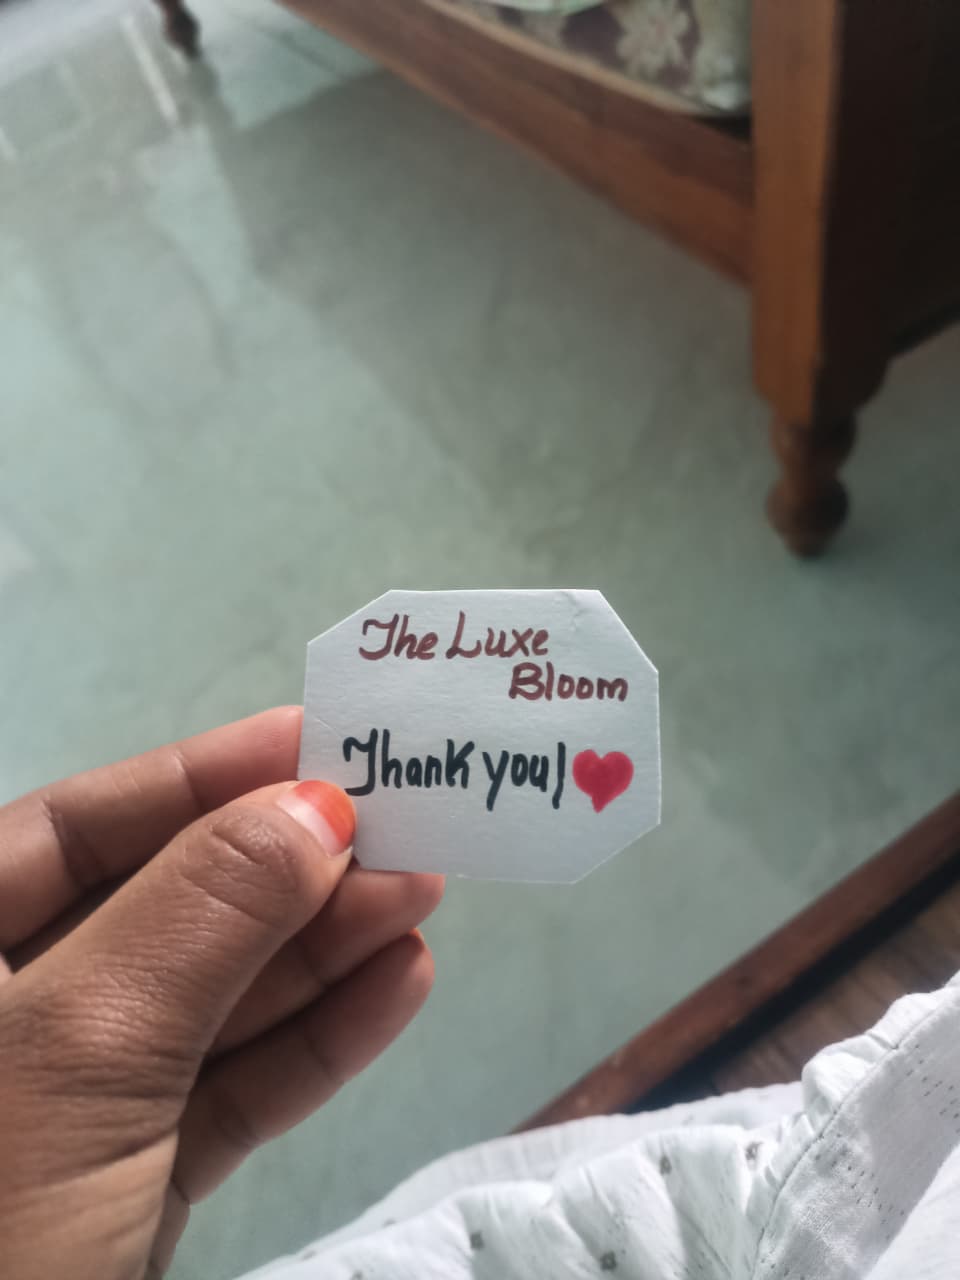 The Luxe
Bloom
Thank you! ❤